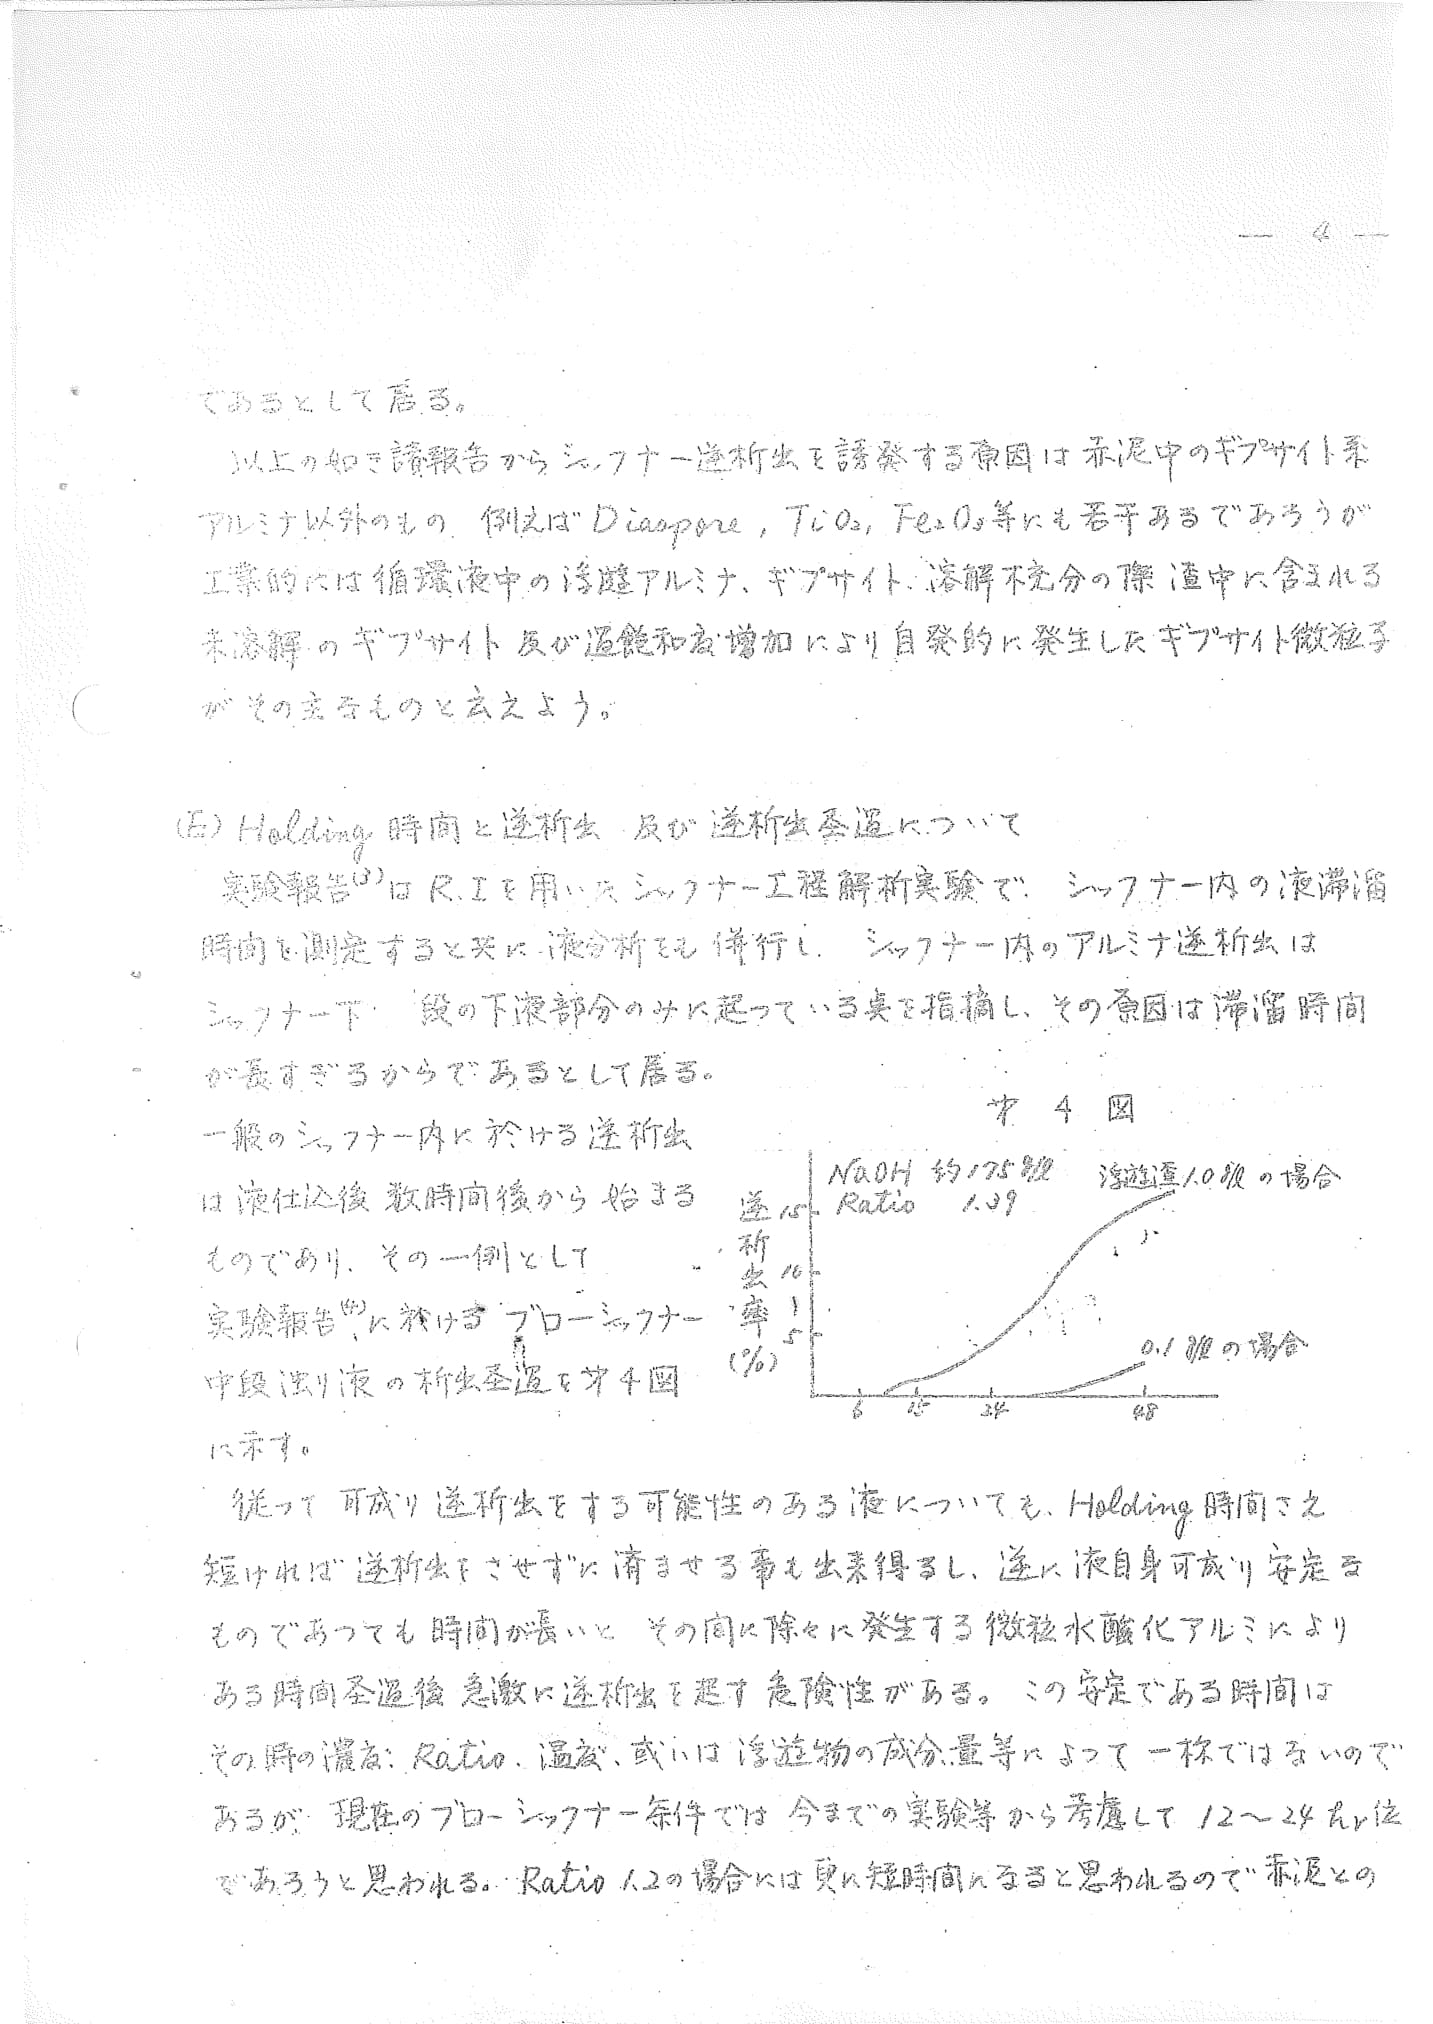 — 4 —
であるとして居る。
以上の如き諸報告からシックナー逆析出を誘発する原因は赤泥中のギプサイト系
アルミナ以外のもの 例えば Diaspore, TiO₂, Fe₂O₃等にも若干あるであろうが
工業的には循環液中の浮遊アルミナ、ギプサイト、溶解不充分の際 渣中に含まれる
未溶解のギプサイト 及び過飽和度増加により自発的に発生したギプサイト微粒子
がその主なものと云えよう。
(E) Holding 時間と逆析出 及び 逆析出圣過について
実験報告⁽³⁾は R.I を用いたシックナー工程解析実験で、シックナー内の液滞溜
時間を測定すると共に液分析をも併行し、シックナー内のアルミナ逆析出は
シックナー下 段の下液部分のみに起っている点を指摘し、その原因は滞溜時間
が長すぎるからであるとして居る。
一般のシックナー内に於ける逆析出
は液仕込後数時間後から始まる
ものであり、その一例として
実験報告⁽⁴⁾に於ける ブローシックナー
中段濁り液の析出圣過を才4図
に示す。
才 4 図
NaOH 約175g/l 浮遊渣1.0g/l の場合
Ratio 1.39
逆析出率(%)
15
10
5
0.1g/l の場合
6 15 24 48
従って 可成り逆析出をする可能性のある液についても、Holding 時間さえ
短ければ逆析出をさせずに済ませる事も出来得るし、逆に液自身可成り安定な
ものであっても時間が長いと その間に除々に発生する微粒水酸化アルミにより
ある時間圣過後急激に逆析出を起す危険性がある。この安定である時間は
その時の濃度、Ratio、温度、或いは浮遊物の成分、量等によって一様ではないので
あるが、現在のブローシックナー条件では今までの実験等から考慮して 12〜24 hr位
であろうと思われる。Ratio 1.2の場合には更に短時間になると思われるので赤泥との